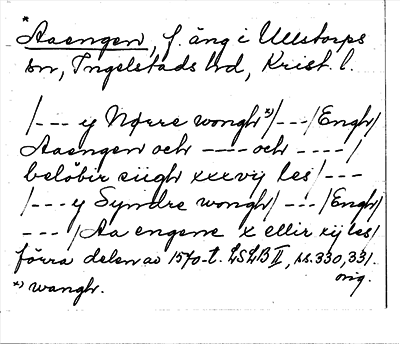 *
Aaengen, f. äng i Ullstorps
sn, Ingelstads hd, Krist. l.
/--- y Nørre wongh x)/---/Engh/
Aaengen och ---- och ----/
beløbir siigh xxxvij les/---
/--- y Syndre wongh/---/Engh/
---/Aa engene x ellir xij les/
förra delen av 1570-t. LSLB II, ss. 330, 331.
orig.
x) wangh.